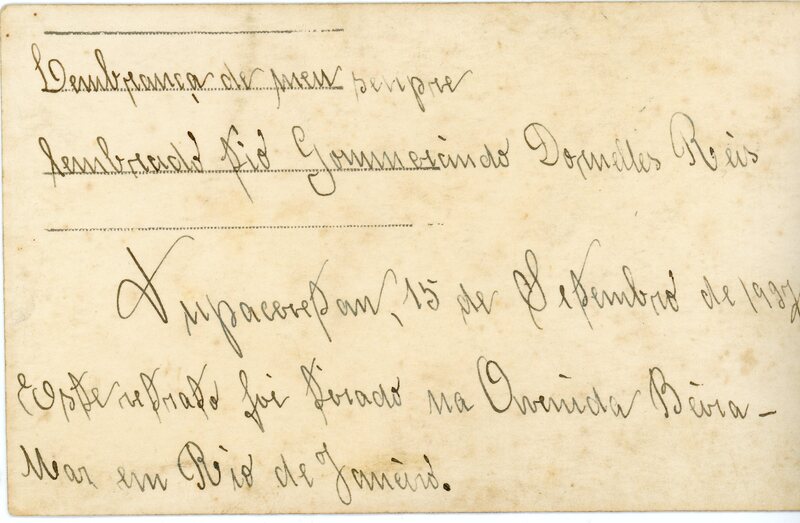 Lembrança de meu sempre
lembrado tio Gommercindo Dornelles Reis
Tupaceretan, 15 de Setembro de 1937
Este retrato foi tirado na Avenida Beira-
Mar em Rio de Janeiro.